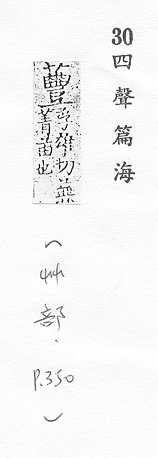 30四聲篇海
蘴孚雄切蕪
菁苗也
(艸部.P.350)